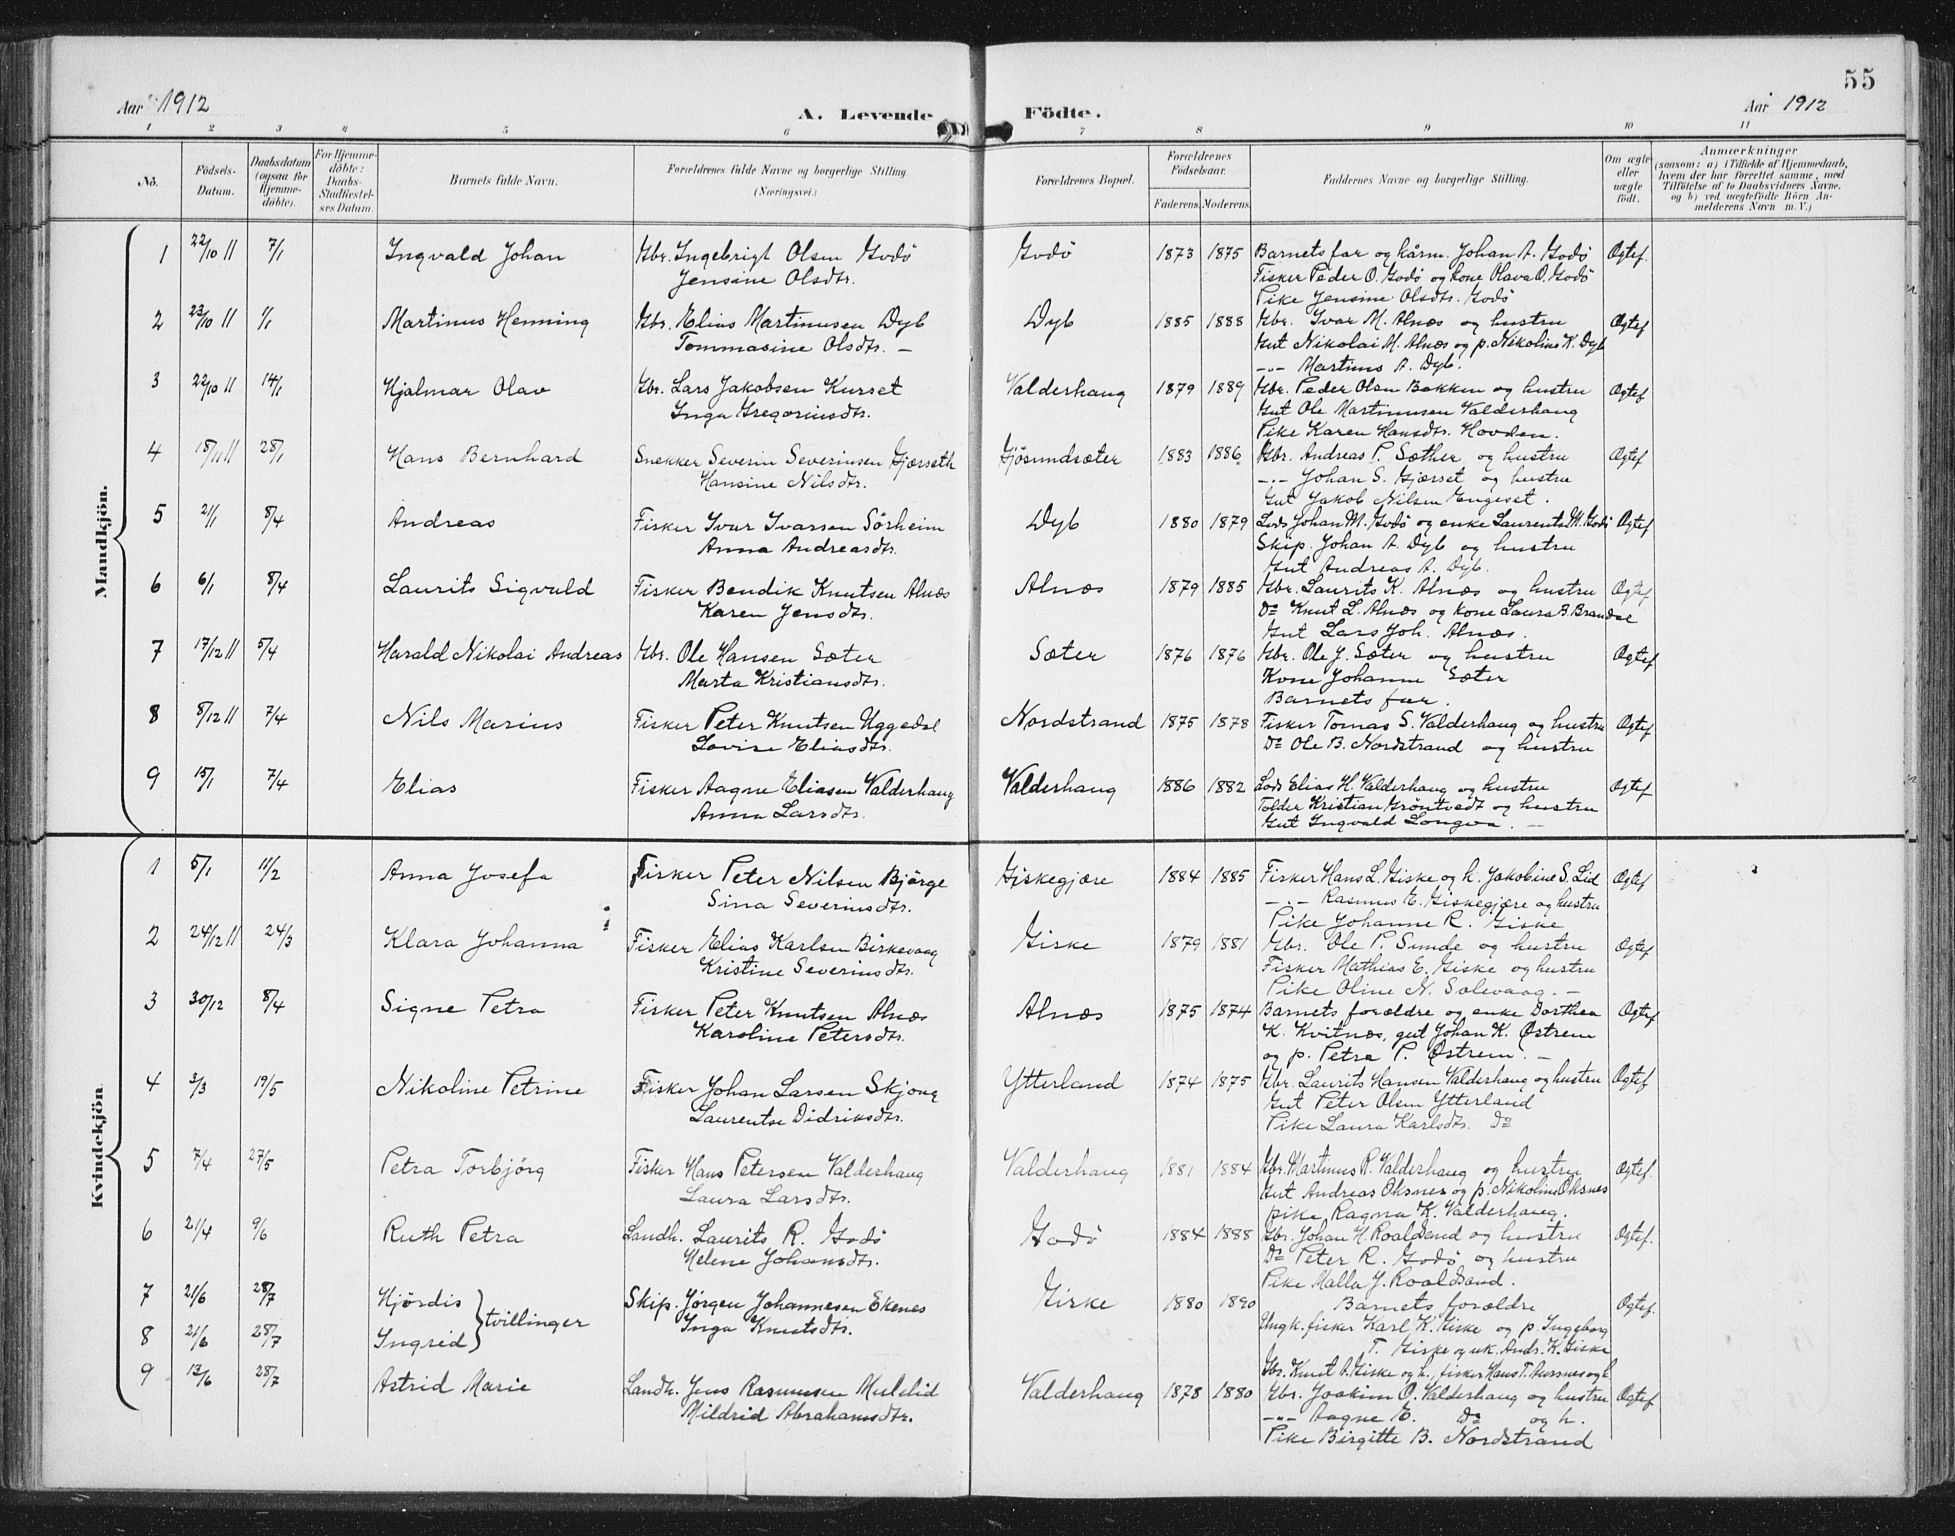 55
Aar 1912
A. Levende Födte.
Aar 1912
1 2 3 4 5 6 7 8 9 10 11
No. Födsels-Datum. Daabsdatum (ogsaa for Hjemme-döbte). For Hjemme-döbte: Daabs-Stadfæstel-ses Datum. Barnets fulde Navn. Forældrenes fulde Navne og borgerlige Stilling. (Næringsvei.) Forældrenes Bopæl. Forældrenes Födselsaar. Faderens. Moderens. Faddernes Navne og borgerlige Stilling. Om ægte eller uægte födt. Anmærkninger (saasom: a) i Tilfælde af Hjemmedaab, hvem der har forrettet samme, med Tilföielse af to Daabsvidners Navne, og b) ved uægtefödte Börn An-melderens Navn m. V.)
Mandkjön.
1 22/10 11 7/1 Ingvald Johan Gbr. Ingebrigt Olsen Godö Godö 1873 1875 Barnets far og kårm. Johan A. Godö Ægtef.
Jensine Olsdtr. Fisker Peder O. Godö og kone Olava O. Godö
Pike Jensine Olsdtr. Godö
2 23/10 11 1/1 Martinus Henning Gbr. Elias Martinusen Dyb Dyb 1885 1888 Gbr. Ivar M. Alnæs og hustru Ægtef
Tommasine Olsdtr. — Gut Nikolai M. Alnæs og p. Nikoline K. Dyb
-"- Martinus A. Dyb.
3 22/10 11 14/1 Hjalmar Olav Gbr. Lars Jakobsen Kurset Valderhaug 1879 1889 Gbr. Peder Olsen Bakken og hustru Ægtef
Inga Gregoriusdtr. Gut Ole Martinusen Valderhaug
Pike Karen Hansdtr. Hovden.
4 18/11 11 28/1 Hans Bernhard Snekker Severin Severinsen Gjærseth Gjösundsæter 1883 1886 Gbr. Andreas P. Sæther og hustru Ægtef
Hansine Nilsdtr. -"- Johan S. Gjærset og hustru
Gut Jakob Nilsen Engeset.
5 2/1 8/4 Andreas Fisker Ivar Ivarsen Sörheim Dyb 1880 1879 Lods Johan M. Godö og enke Laurentse M. Godö Ægtef
Anna Andreasdtr. Skip. Johan A. Dyb og hustru
Gut Andreas A. Dyb.
6 6/1 8/4 Laurits Sigvald Fisker Bendik Knutsen Alnæs Alnæs 1879 1885 Gbr. Laurits K. Alnæs og hustru Ægtef
Karen Jensdtr. Do Knut L. Alnæs og kone Laura B. Brandal
Gut Lars Joh. Alnæs.
7 17/12 11 5/4 Harald Nikolai Andreas Gbr. Ole Hansen Sæter Sæter 1876 1876 Gbr. Ole J. Sæter og hustru Ægtef
Marta Kristiansdtr. Kone Johanne Sæter
Barnets far.
8 8/12 11 7/4 Nils Marius Fisker Peter Knutsen Uggedal Nordstrand 1875 1878 Fisker Tomas S. Valderhaug og hustru Ægtef
Lovise Eliasdtr. Do Ole B. Nordstrand og hustru
9 15/1 7/4 Elias Fisker Aagne Eliasen Valderhaug Valderhaug 1886 1882 Lods Elias H. Valderhaug og hustru Ægtef
Anna Larsdtr. Tolder Kristian Gröntvedt og hustru
Gut Ingvald Longva. —
Kvindekjön
1 5/1 11/2 Anna Josefa Fisker Peter Nilsen Björge Giskegjære 1884 1885 Fisker Hans L. Giske og h. Jakobine S. Lid Ægtef
Sina Severinsdtr. -"- Rasmus E. Giskegjære og hustru
Pike Johanne R. Giske
2 24/12 11 24/3 Klara Johanna Fisker Elias Karlsen Birkevaag Giske 1879 1881 Gbr. Ole P. Sunde og hustru Ægtef
Kristine Severinsdtr. Fisker Mathias E. Giske og hustru
Pike Oline N. Solevaag. —
3 30/12 8/4 Signe Petra Fisker Peter Knutsen Alnæs Alnæs 1875 1874 Barnets forældre og enke Dorthea Ægtef
Karoline Petersdtr. K. Kvitnæs, gut Johan K. Östrem
og p. Petra P. Östrem. —
4 3/3 19/5 Nikoline Petrine Fisker Johan Larsen Skjong Ytterland 1874 1875 Gbr. Laurits Hansen Valderhaug og hustru Ægtef
Laurentse Didriksdtr. Gut Peter Olsen Ytterland
Pike Laura Karlsdtr. Do
5 7/4 27/5 Petra Torbjörg Fisker Hans Petersen Valderhaug Valderhaug 1881 1884 Gbr. Martinus R. Valderhaug og hustru Ægtef.
Laura Larsdtr. Gut Andreas Oksnes og p. Nikoline Oksnes
pike Ragna K. Valderhaug.
6 21/4 9/6 Ruth Petra Landh. Laurits R. Godö Godö 1884 1888 Gbr. Johan H. Roaldsand og hustru Ægtef.
Helene Johansdtr. Do Peter R. Godö og hustru
Pike Malla J. Roaldsand.
7 21/6 28/7 Hjördis } tvillinger Skip. Jörgen Johannesen Ekenes Giske 1880 1890 Barnets forældre Ægtef.
8 21/6 28/7 Ingrid Inga Knutsdtr. Ungk. fisker Karl K. Giske og p. Ingeborg
T. Giske og uk. Andr. K. Giske
Gbr. Knut A. Giske og h., fisker Hans T. Aursnes og h
9 13/6 28/7 Astrid Marie Landh. Jens Rasmussen Mulelid Valderhaug 1878 1880 Gbr. Joakim O. Valderhaug og hustru Ægtef
Mildrid Abrahamsdtr. -"- Aagne E. Do og h.
Pike Birgitte B. Nordstrand